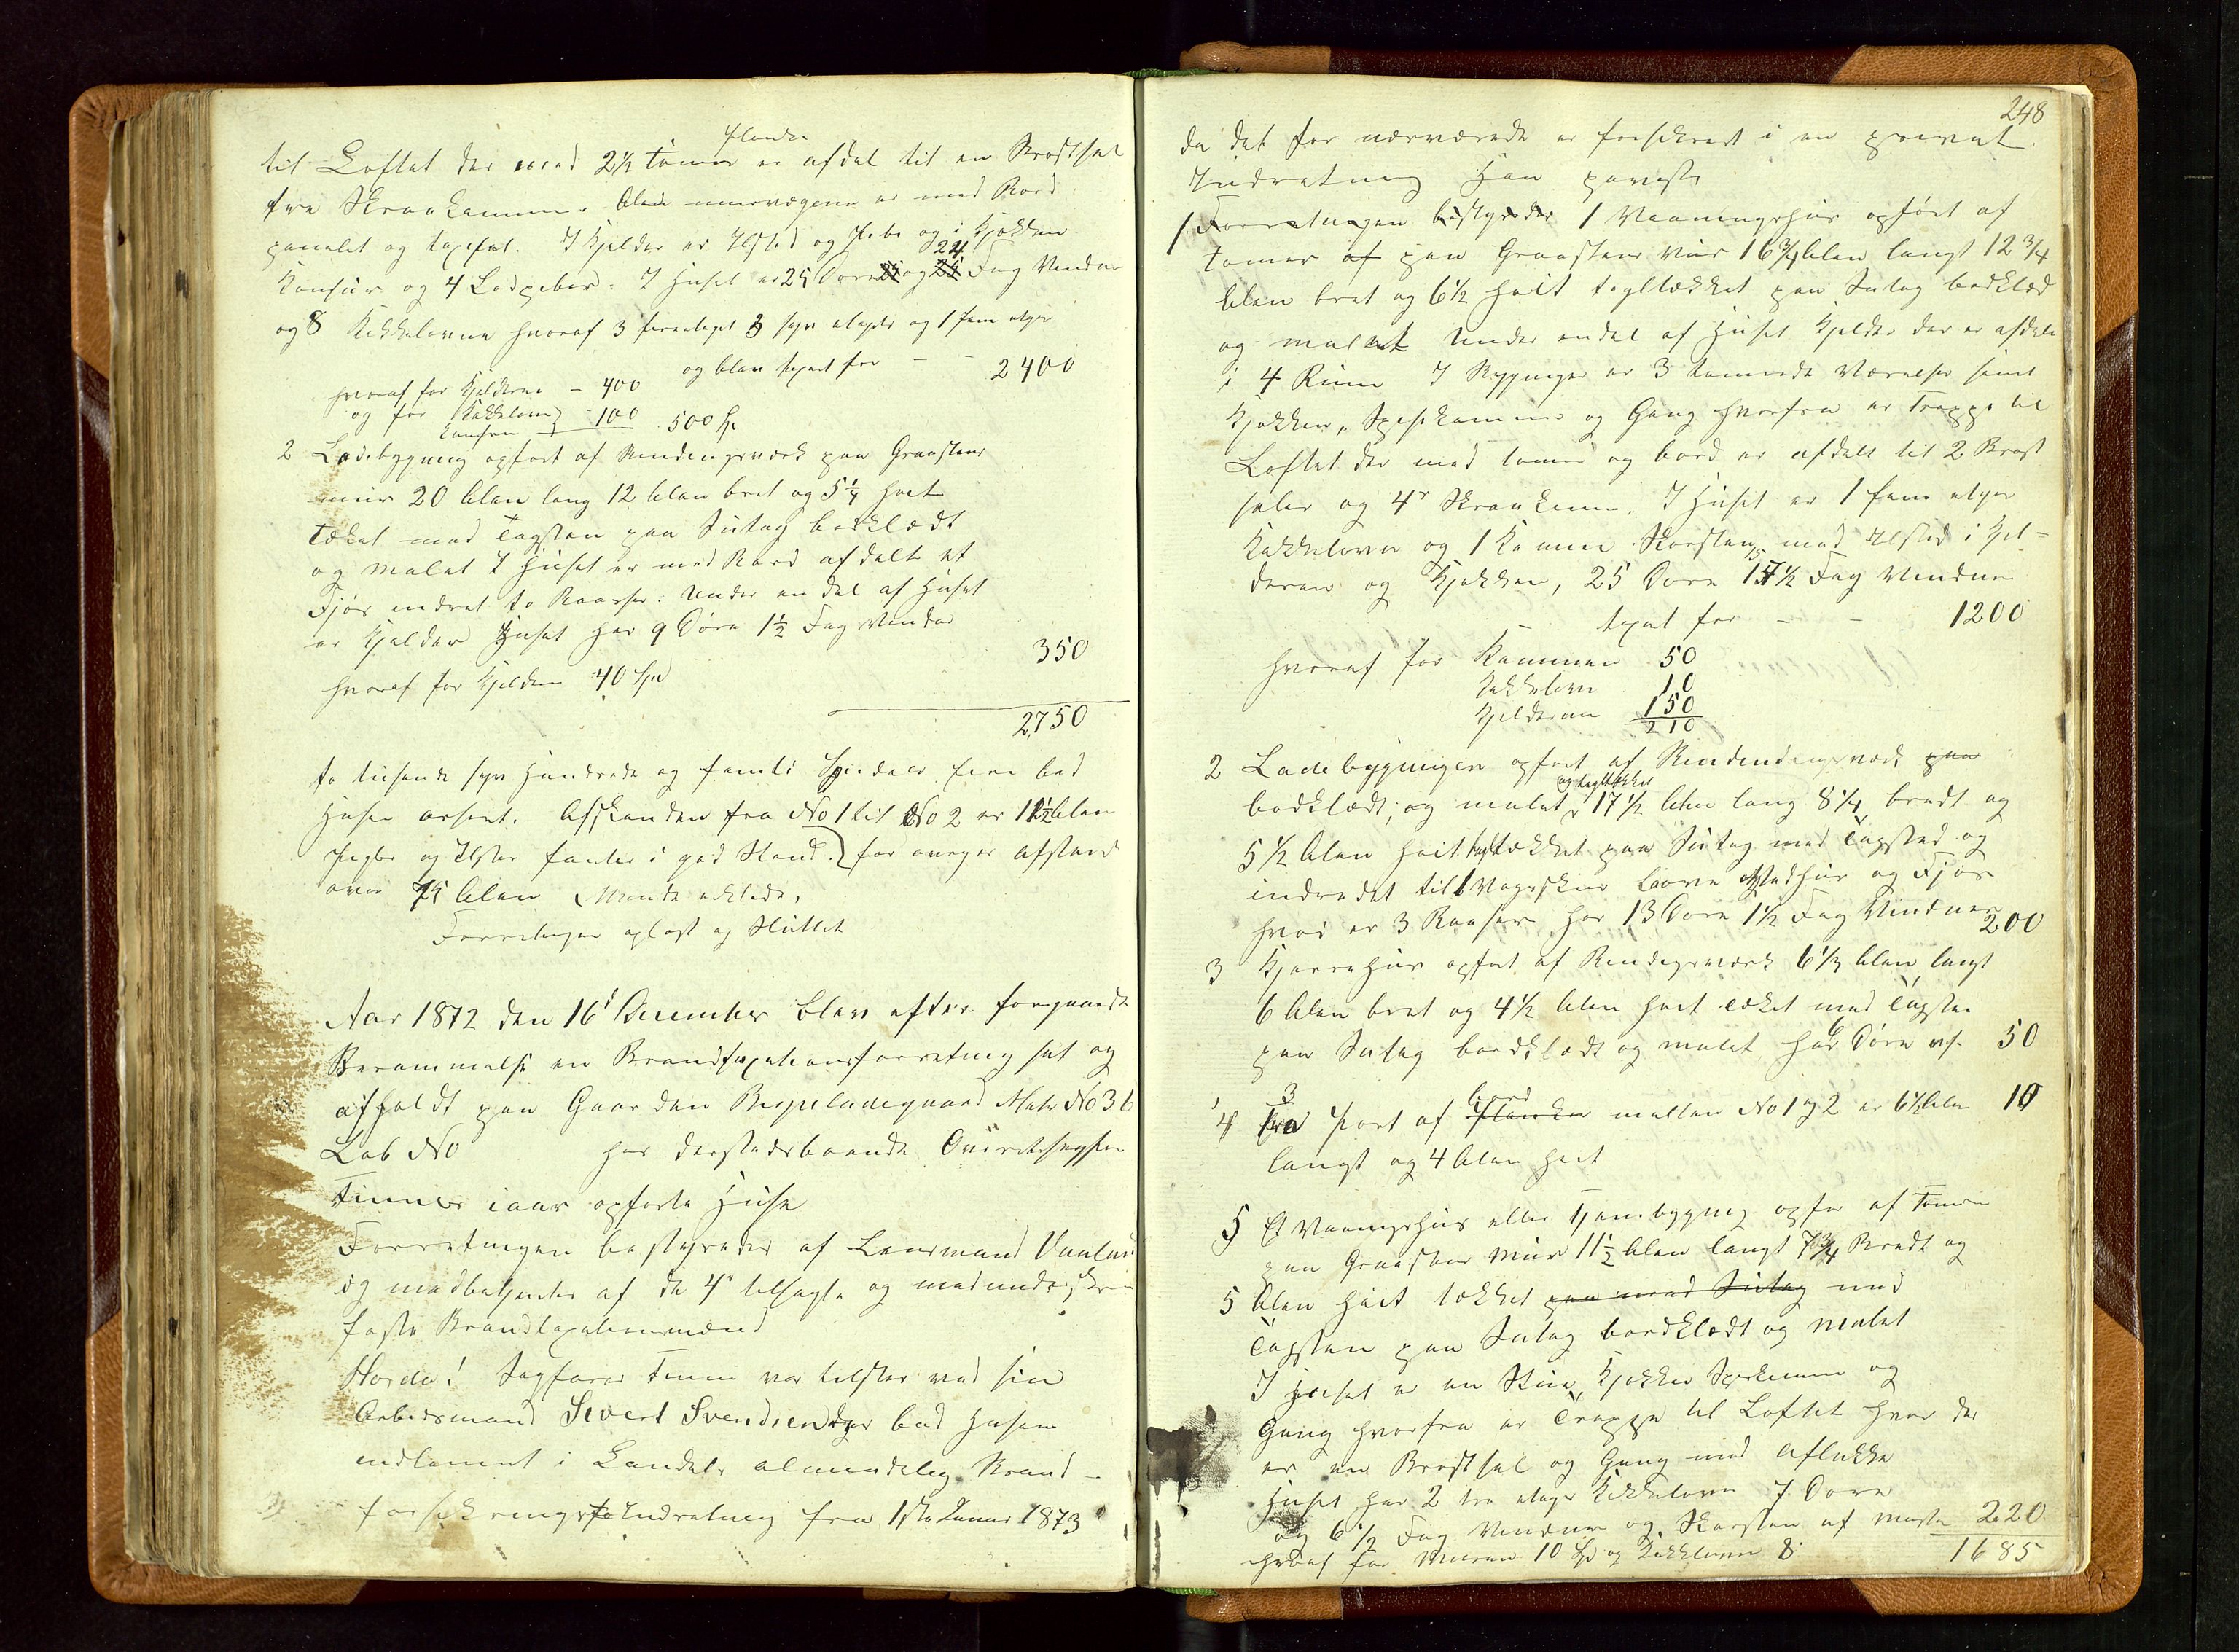 til Loftet der med 2½ tomm Planke er afdel til en Brystsal
fra Skraakammer. Alle murvægene er med Bord
panelet og tapetset. I Kjelder er Ilsted og Pibe og i Kjøkken
Komfur og 4 Ladpiber. I Huset er 25 Døre og 24 Fag Vinduer
og 8 Kakkelovne hvoraf 3 fireetages 3 tre etages og 1 fem etages
og blev taxert for - - 2400
hvoraf for Kjelderne - 400
og for Kakkelovne - 100
Komfur 500 Sp
2 Ladebygning opført af Bindingsværk paa Graastens
muur 20 Alen lang 12 Alen bret og 5¼ høit
tækket med Tagsten paa Sutag bordklædt
og malet I Huset er med Bord afdelt et
Fjøs indret to Baaser. Under en del af Huset
er Kjelder Huset har 9 Døre 1½ Fag Vinduer
350
hvoraf for Kjelderen 40 Spd
2,750
to tusende syv Hundrede og femti Speciedaler
Husene assurert. Afstanden fra No 1 til No 2 er 11½ Alen
Piber og Ilsteder fandtes i god Stand. for øvrigt Afstand
over 75 Alen
Forretningen oplæst og Sluttet
Aar 1872 den 16d December blev efter foregaaende
Berammelse en Brandtaxationsforretning sat og
afholdt paa Gaarden Bispeladegaard Matr No 36
Løb No hos derstedsboende Overretssagfører
Finnes iaar opførte Huse
Forretningen bestyredes af Lensmand Vaaland
og medbetjentes af de 4r tilsagte og medunderskrevne
faste Brandtaxationsmænd
Hvorda! Sagfører Finne var tilstede ved sin
Arbeidsmand Sivert Svendsen der bad Husene
indlemmet i Landets almindelige Brand-
forsikringsIndretning fra 1ste Januar 1873
248
da det for nærværende er forsikrert i en privat
Indretning Han paaviste
1 Forretningen bestyredes 1 Vaaningshus opført af
tømmer af paa Graastens Muur 16¾ Alen langt 12¾
Alen bret og 6½ høit tagltækket paa Sutag bordklæd
og malet Under endel af Huset Kjelder der er afdelt
i 4 Rum I Bygningen er 3 tømrede Værelser samt
Kjøkken, Spisekammer og Gang hvorfra er Trappe til
Loftet der med tømmer og bord er afdelt til 2 Bryst
saler og 4r Skraakamre. I Huset er 1 fem etages
Kakkelovn og 1 Kamin Skorsten med Ilsted i Kjel-
deren og Kjøkken, 25 Døre 15½ Fag Vinduer
taxert for - - 1200
hvoraf for Kaminen 50
Kakkelovn 10
Kjelderen 150
210
2 Ladebygningen opført af Bindingsværk paa
bordklædt, og malet og tagltækket 17½ Alen lang 8¼ bredt og
5½ Alen høit tagltækket paa Sutag med Tagsten og
indredet til 1 Vognskur Laave Vedhus og Fjøs
hvori er 3 Baaser har 13 Døre 1½ Fag Vinduer 200
3 Kjørrehuus opført af Bindingsværk 6½ Alen langt
6 Alen bret og 4½ Alen høit tækket med Tagsten
paa Sutag bordklædt og malet har 6 Døre 50
4 3 Port af Bord Planker mellem No 1 og 2 er 6½ Alen 10
langt og 4 Alen høit
5 Et Vaaningshus eller Hjembygning opført af Tømmer
paa Graastens Muur 11½ Alen langt 7¾ Bredt og
5 Alen høit tækket paa med Sutag med
Tagsten paa Sutag bordklædt og malet
I Huset er en Stue, Kjøkken Spiskammer og
Gang hvorfra er Trappe til Loftet hvor der
er en Brystsal og Gang med Aflukke
Huset har 2 tre etages Kakkelovne 7 Døre
og 6½ Fag Vinduer og Skorsten af 220
hvoraf for Muren 10 Spd og Kakkelovne 8
1685